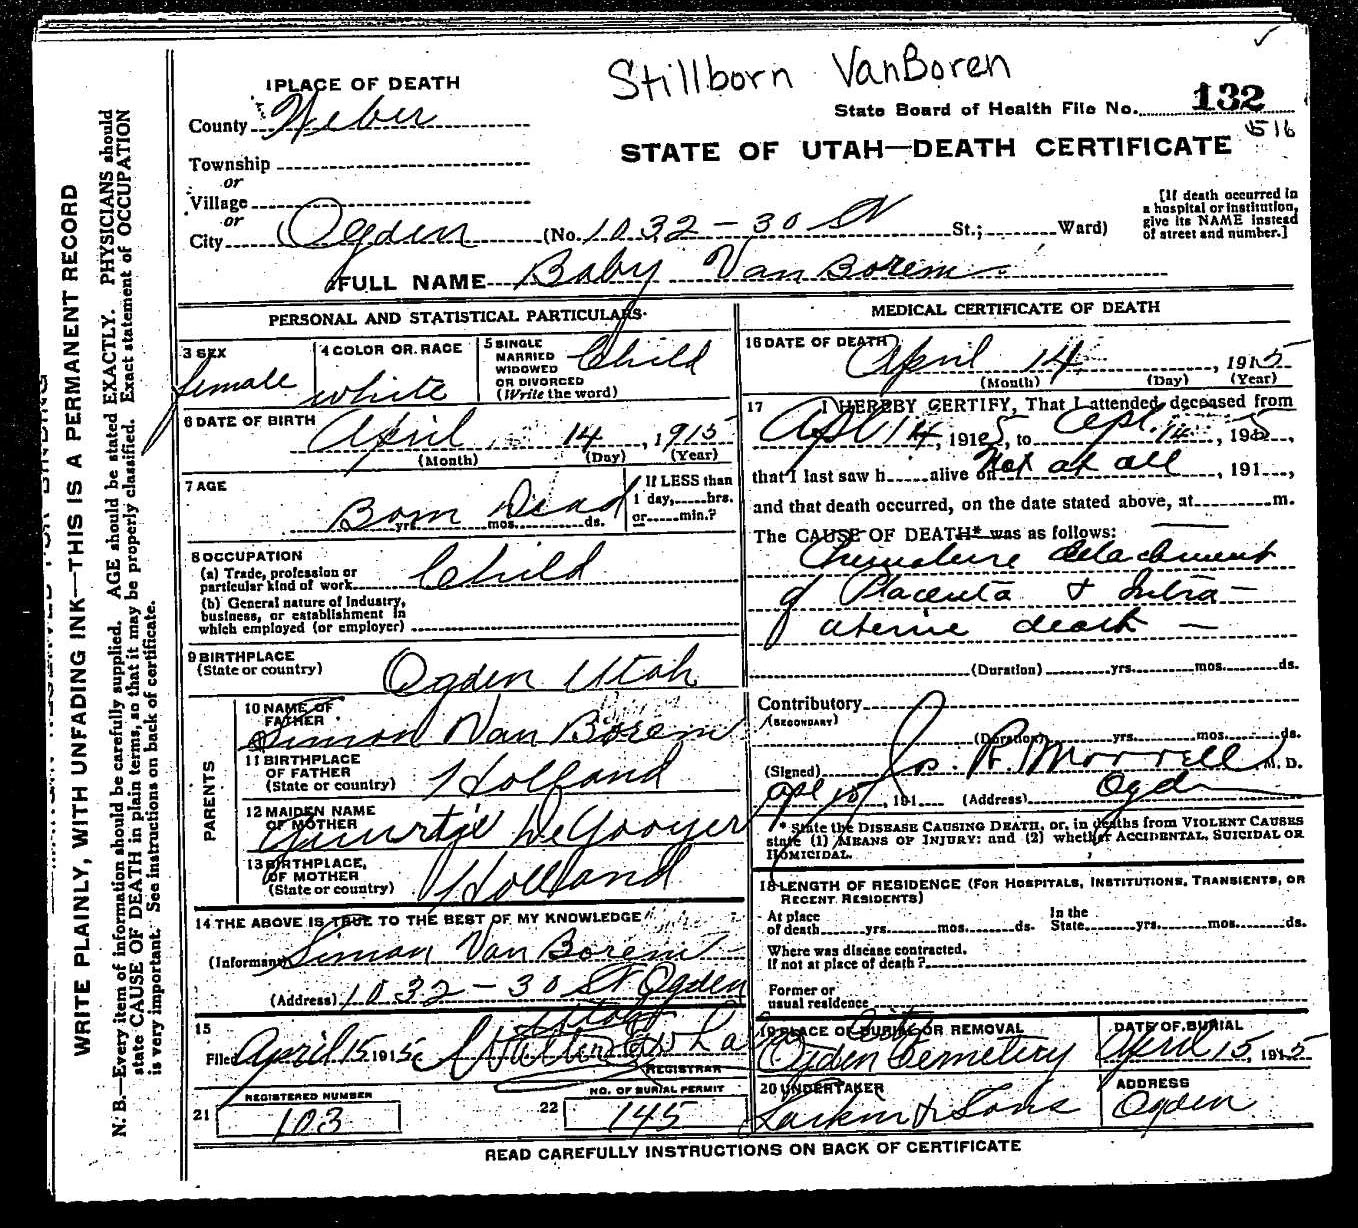 Stillborn VanBoren
1 PLACE OF DEATH
State Board of Health File No. 132
516
County Weber
STATE OF UTAH—DEATH CERTIFICATE
Township
or
Village
or
City Ogden (No. 1032 - 30 St St.; Ward)
[If death occurred in
a hospital or institution,
give its NAME instead
of street and number.]
FULL NAME Baby Van Borem
PERSONAL AND STATISTICAL PARTICULARS
3 SEX
female
4 COLOR OR RACE
white
5 SINGLE
MARRIED
WIDOWED
OR DIVORCED
(Write the word)
Child
6 DATE OF BIRTH
April 14, 1915
(Month) (Day) (Year)
7 AGE
Born Dead
yrs. mos. ds.
If LESS than
1 day, hrs.
or min.?
8 OCCUPATION
(a) Trade, profession or
particular kind of work Child
(b) General nature of Industry,
business, or establishment in
which employed (or employer)
9 BIRTHPLACE
(State or country)
Ogden Utah
PARENTS
10 NAME OF
FATHER
Simon Van Borem
11 BIRTHPLACE
OF FATHER
(State or country)
Holland
12 MAIDEN NAME
OF MOTHER
DeGooyer
13 BIRTHPLACE
OF MOTHER
(State or country)
Holland
14 THE ABOVE IS TRUE TO THE BEST OF MY KNOWLEDGE
(Informant) Simon Van Borem
(Address) 1032 - 30 St Ogden
Utah
15
Filed April 15 1915
REGISTRAR
REGISTERED NUMBER
21 103
NO. OF BURIAL PERMIT
22 145
MEDICAL CERTIFICATE OF DEATH
16 DATE OF DEATH
April 14, 1915
(Month) (Day) (Year)
17 I HEREBY CERTIFY, That I attended deceased from
Apl 14, 1915, to Apl. 14, 1915,
that I last saw h alive on Not at all, 191 ,
and that death occurred, on the date stated above, at m.
The CAUSE OF DEATH* was as follows:
Premature detachment
of Placenta & Intra-
uterine death —
(Duration) yrs. mos. ds.
Contributory
(SECONDARY)
(Duration) yrs. mos. ds.
(Signed) Jos. R. Morrell M. D.
Apl 15, 191 (Address) Ogden
* State the DISEASE CAUSING DEATH, or, in deaths from VIOLENT CAUSES
state (1) MEANS OF INJURY: and (2) whether ACCIDENTAL, SUICIDAL OR
HOMICIDAL.
18 LENGTH OF RESIDENCE (FOR HOSPITALS, INSTITUTIONS, TRANSIENTS, OR
RECENT RESIDENTS)
At place
of death yrs. mos. ds.
In the
State yrs. mos. ds.
Where was disease contracted.
If not at place of death?
Former or
usual residence
19 PLACE OF BURIAL OR REMOVAL
City
Ogden Cemetery
DATE OF BURIAL
April 15, 1915
20 UNDERTAKER
Larkin & Sons
ADDRESS
Ogden
READ CAREFULLY INSTRUCTIONS ON BACK OF CERTIFICATE
WRITE PLAINLY, WITH UNFADING INK—THIS IS A PERMANENT RECORD
N. B.—Every item of information should be carefully supplied. AGE should be stated EXACTLY. PHYSICIANS should
state CAUSE OF DEATH in plain terms, so that it may be properly classified. Exact statement of OCCUPATION
is very important. See instructions on back of certificate.